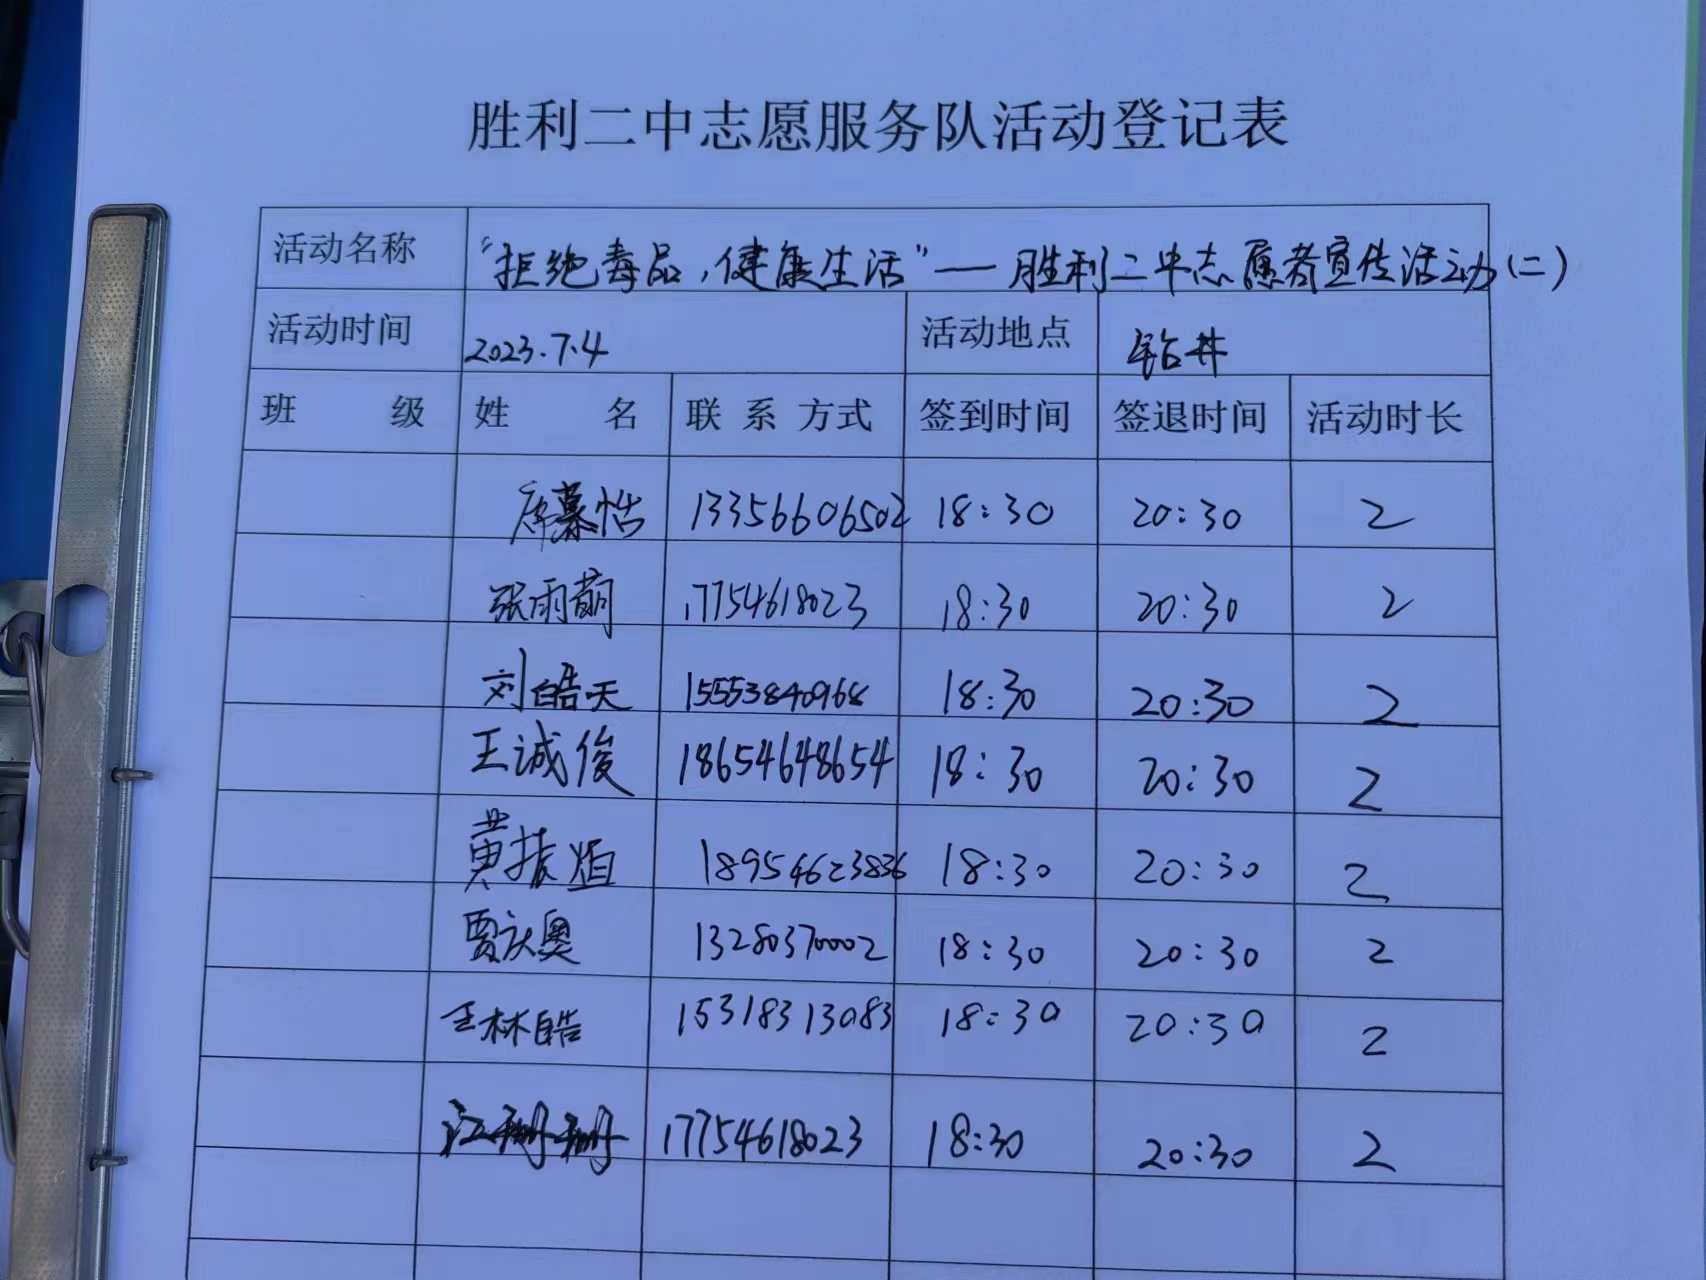 胜利二中志愿服务队活动登记表
活动名称 “拒绝毒品，健康生活”——胜利二中志愿者宣传活动（二）
活动时间 2023.7.4 活动地点 钻井
班 级 姓 名 联 系 方式 签到时间 签退时间 活动时长
席慕恬 13356606502 18:30 20:30 2
张雨萌 17754618023 18:30 20:30 2
刘皓天 15553840968 18:30 20:30 2
王诚俊 18654648654 18:30 20:30 2
黄振烜 18954623836 18:30 20:30 2
贾庆奥 13280370002 18:30 20:30 2
王林皓 15318313083 18:30 20:30 2
江珊珊 17754618023 18:30 20:30 2